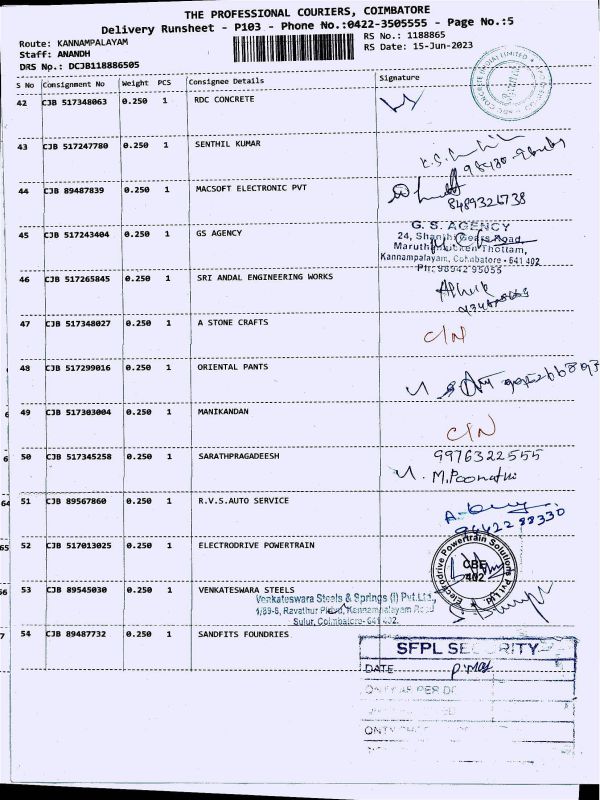 THE PROFESSIONAL COURIERS, COIMBATORE
Delivery Runsheet - P103 - Phone No.:0422-3505555 - Page No.:5
Route: KANNAMPALAYAM RS No.: 1188865
Staff: ANANDH RS Date: 15-Jun-2023
DRS No.: DCJB118886505
S No Consignment No Weight PCS Consignee Details Signature
42 CJB 517348063 0.250 1 RDC CONCRETE
43 CJB 517247780 0.250 1 SENTHIL KUMAR
44 CJB 89487839 0.250 1 MACSOFT ELECTRONIC PVT
8489326738
45 CJB 517243404 0.250 1 GS AGENCY
G. S. AGENCY
24, Shanthi Gears Road,
Thottam,
Kannampalayam, Coimbatore - 641 402
Ph: 98942 95055
46 CJB 517265845 0.250 1 SRI ANDAL ENGINEERING WORKS
47 CJB 517348027 0.250 1 A STONE CRAFTS
C/N
48 CJB 517299016 0.250 1 ORIENTAL PANTS
49 CJB 517303004 0.250 1 MANIKANDAN
C/N
50 CJB 517345258 0.250 1 SARATHPRAGADEESH
9976322555
51 CJB 89567860 0.250 1 R.V.S.AUTO SERVICE
52 CJB 517013025 0.250 1 ELECTRODRIVE POWERTRAIN
Electrodrive Powertrain Solutions Pvt Ltd
CBE
402
53 CJB 89545030 0.250 1 VENKATESWARA STEELS
Venkateswara Steels & Springs (I) Pvt.Ltd.,
Sulur, Coimbatore- 641 402.
54 CJB 89487732 0.250 1 SANDFITS FOUNDRIES
SFPL SECURITY
DATE